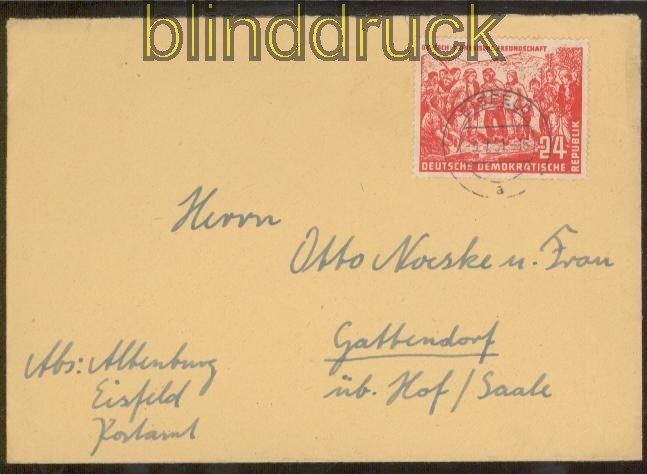 blinddruck
DEUTSCH-CHINESISCHE FREUNDSCHAFT
EISFELD
24
DEUTSCHE DEMOKRATISCHE
REPUBLIK
a
Herrn
Otto Noeske u. Frau
Gattendorf
üb. Hof/Saale
Abs: Altenburg
Eisfeld
Postamt